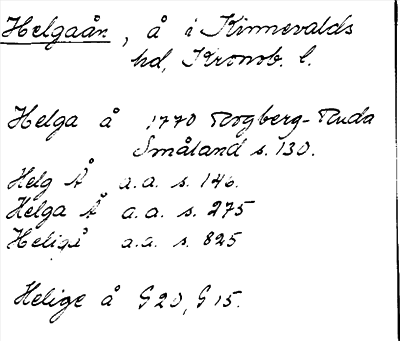 Helgaån, å i Kinnevalds
hd, Kronob. l.
Helga å 1770 Rogberg-Ruda
Småland s. 130.
Helg Å a.a. s. 146.
Helga Å a.a. s. 275
Heligå a.a. s. 825
Helige å G 20, G 15.